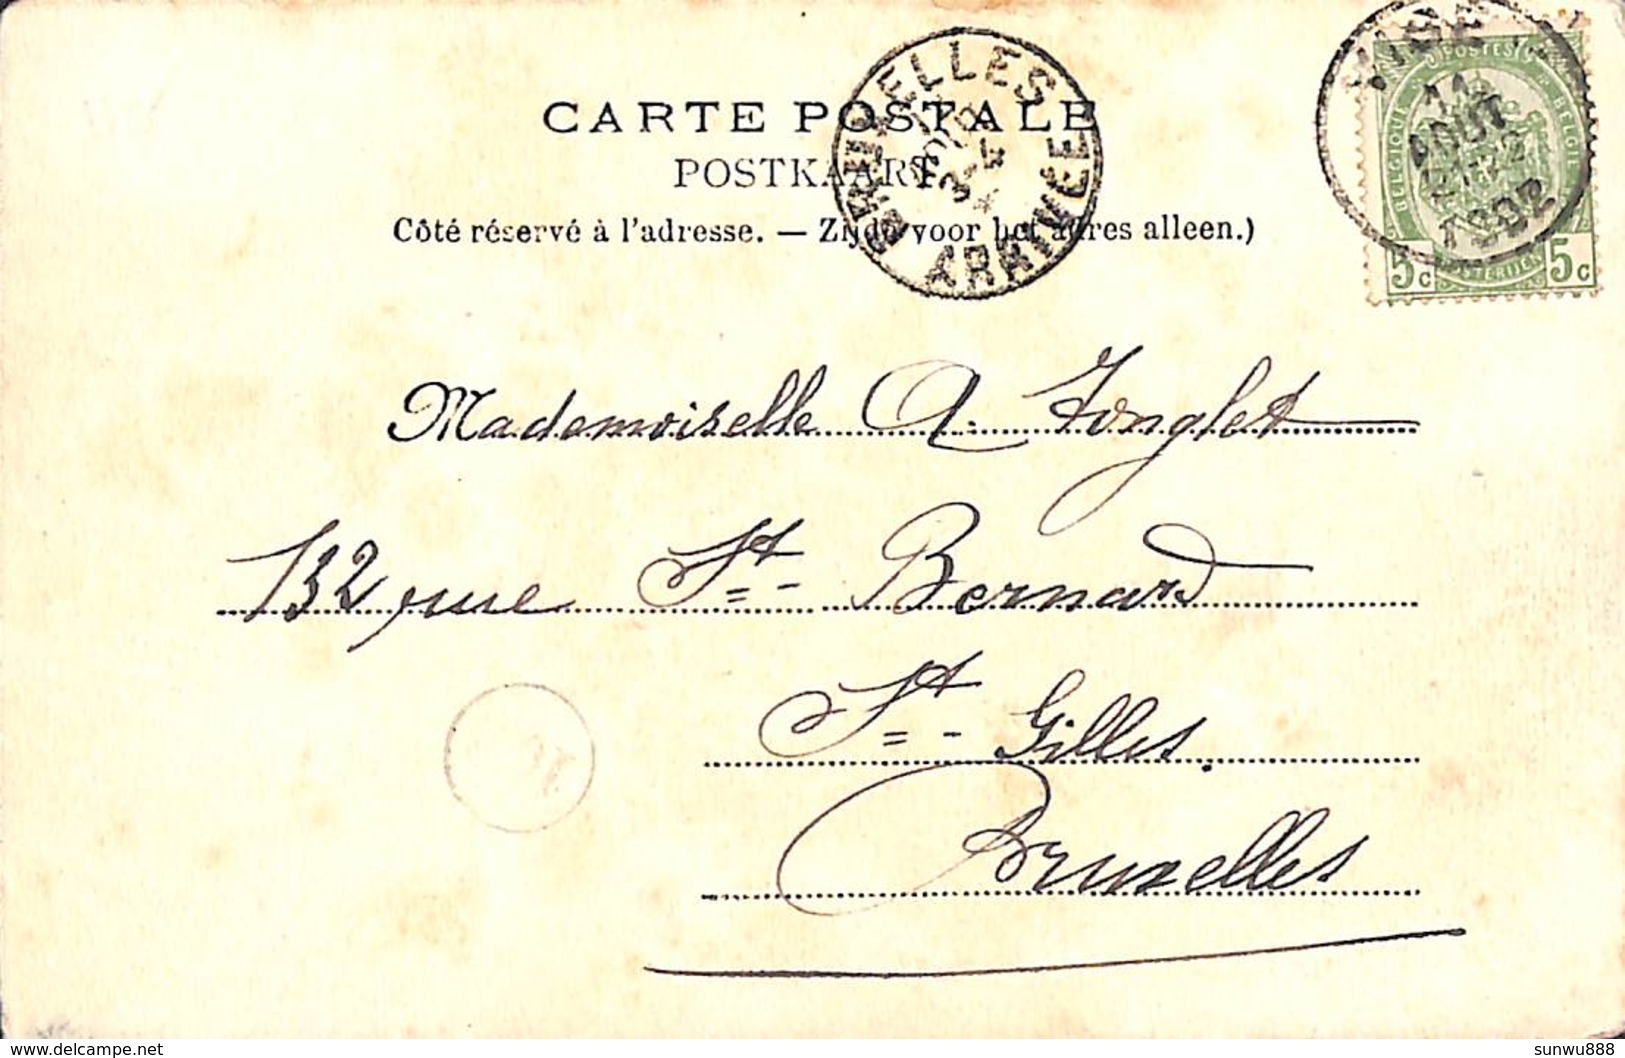 CARTE POSTALE
POSTKAART.
Côté réservé à l'adresse. — Zijde voor het adres alleen.)
BRUXELLES
3-4
*
ARRIVÉE
11
AOUT
1902
POSTES
BELGIQUE
BELGIË
POSTERIJEN
5c 5c
Mademoiselle A. Tonglet
132 rue St- Bernard
St- Gilles.
Bruxelles
www.delcampe.net
sunwu888